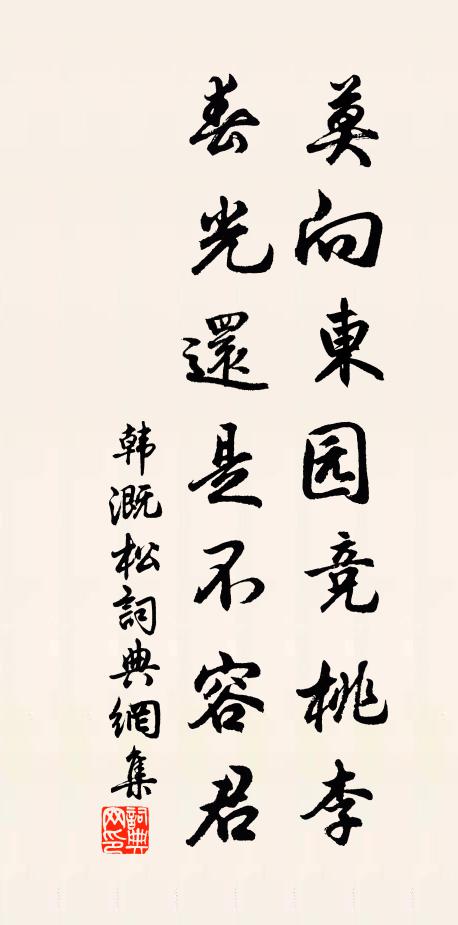 莫向東园竞桃李
春光還是不容君
韩溉松詞典網集
詞典网印